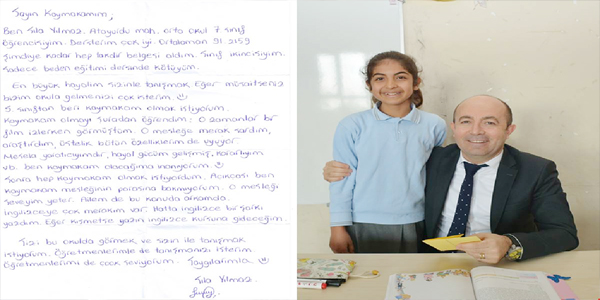 Sayın Kaymakamım,
Ben Sıla Yılmaz. Atayurdu mah. orta okul 7. sınıf
öğrencisiyim. Derslerim çok iyi. Ortalamam 91.2159
Şimdiye kadar hep takdir belgesi aldım. Sınıf ikincisiyim.
Sadece beden eğitimi dersinde kötüyüm.
En büyük hayalim sizinle tanışmak. Eğer müsaitseniz
bizim okula gelmenizi çok isterim.
5. sınıftan beri kaymakam olmak istiyorum.
Kaymakam olmayı şuradan öğrendim: O zamanlar bir
film izlerken görmüştüm. O mesleğe merak sardım,
araştırdım, üstelik bütün özelliklerim de uyuyor.
Mesela yaratıcıyımdır, hayal gücüm gelişmiş, kararlıyım
vb. ben kaymakam olacağıma inanıyorum.
Sonra hep kaymakam olmak istiyordum. Açıkçası ben
kaymakam mesleğinin parasına bakmıyorum. O mesleği
seveyim yeter. Ailem de bu konuda arkamda.
İngilizceye çok merakım var. Hatta ingilizce bir şarkı
yazdım. Eğer kısmetse yazın ingilizce kursuna gideceğim.
Sizi bu okulda görmek ve sizin ile tanışmak
istiyorum. Öğretmenlerimle de tanışmanızı isterim
Öğretmenlerimi de çok seviyorum. Saygılarımla.
Sıla Yılmaz